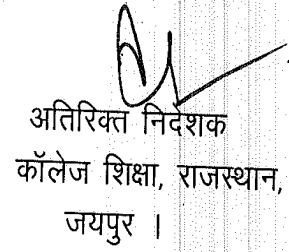 अतिरिक्त निदेशक
कॉलेज शिक्षा, राजस्थान,
जयपुर ।